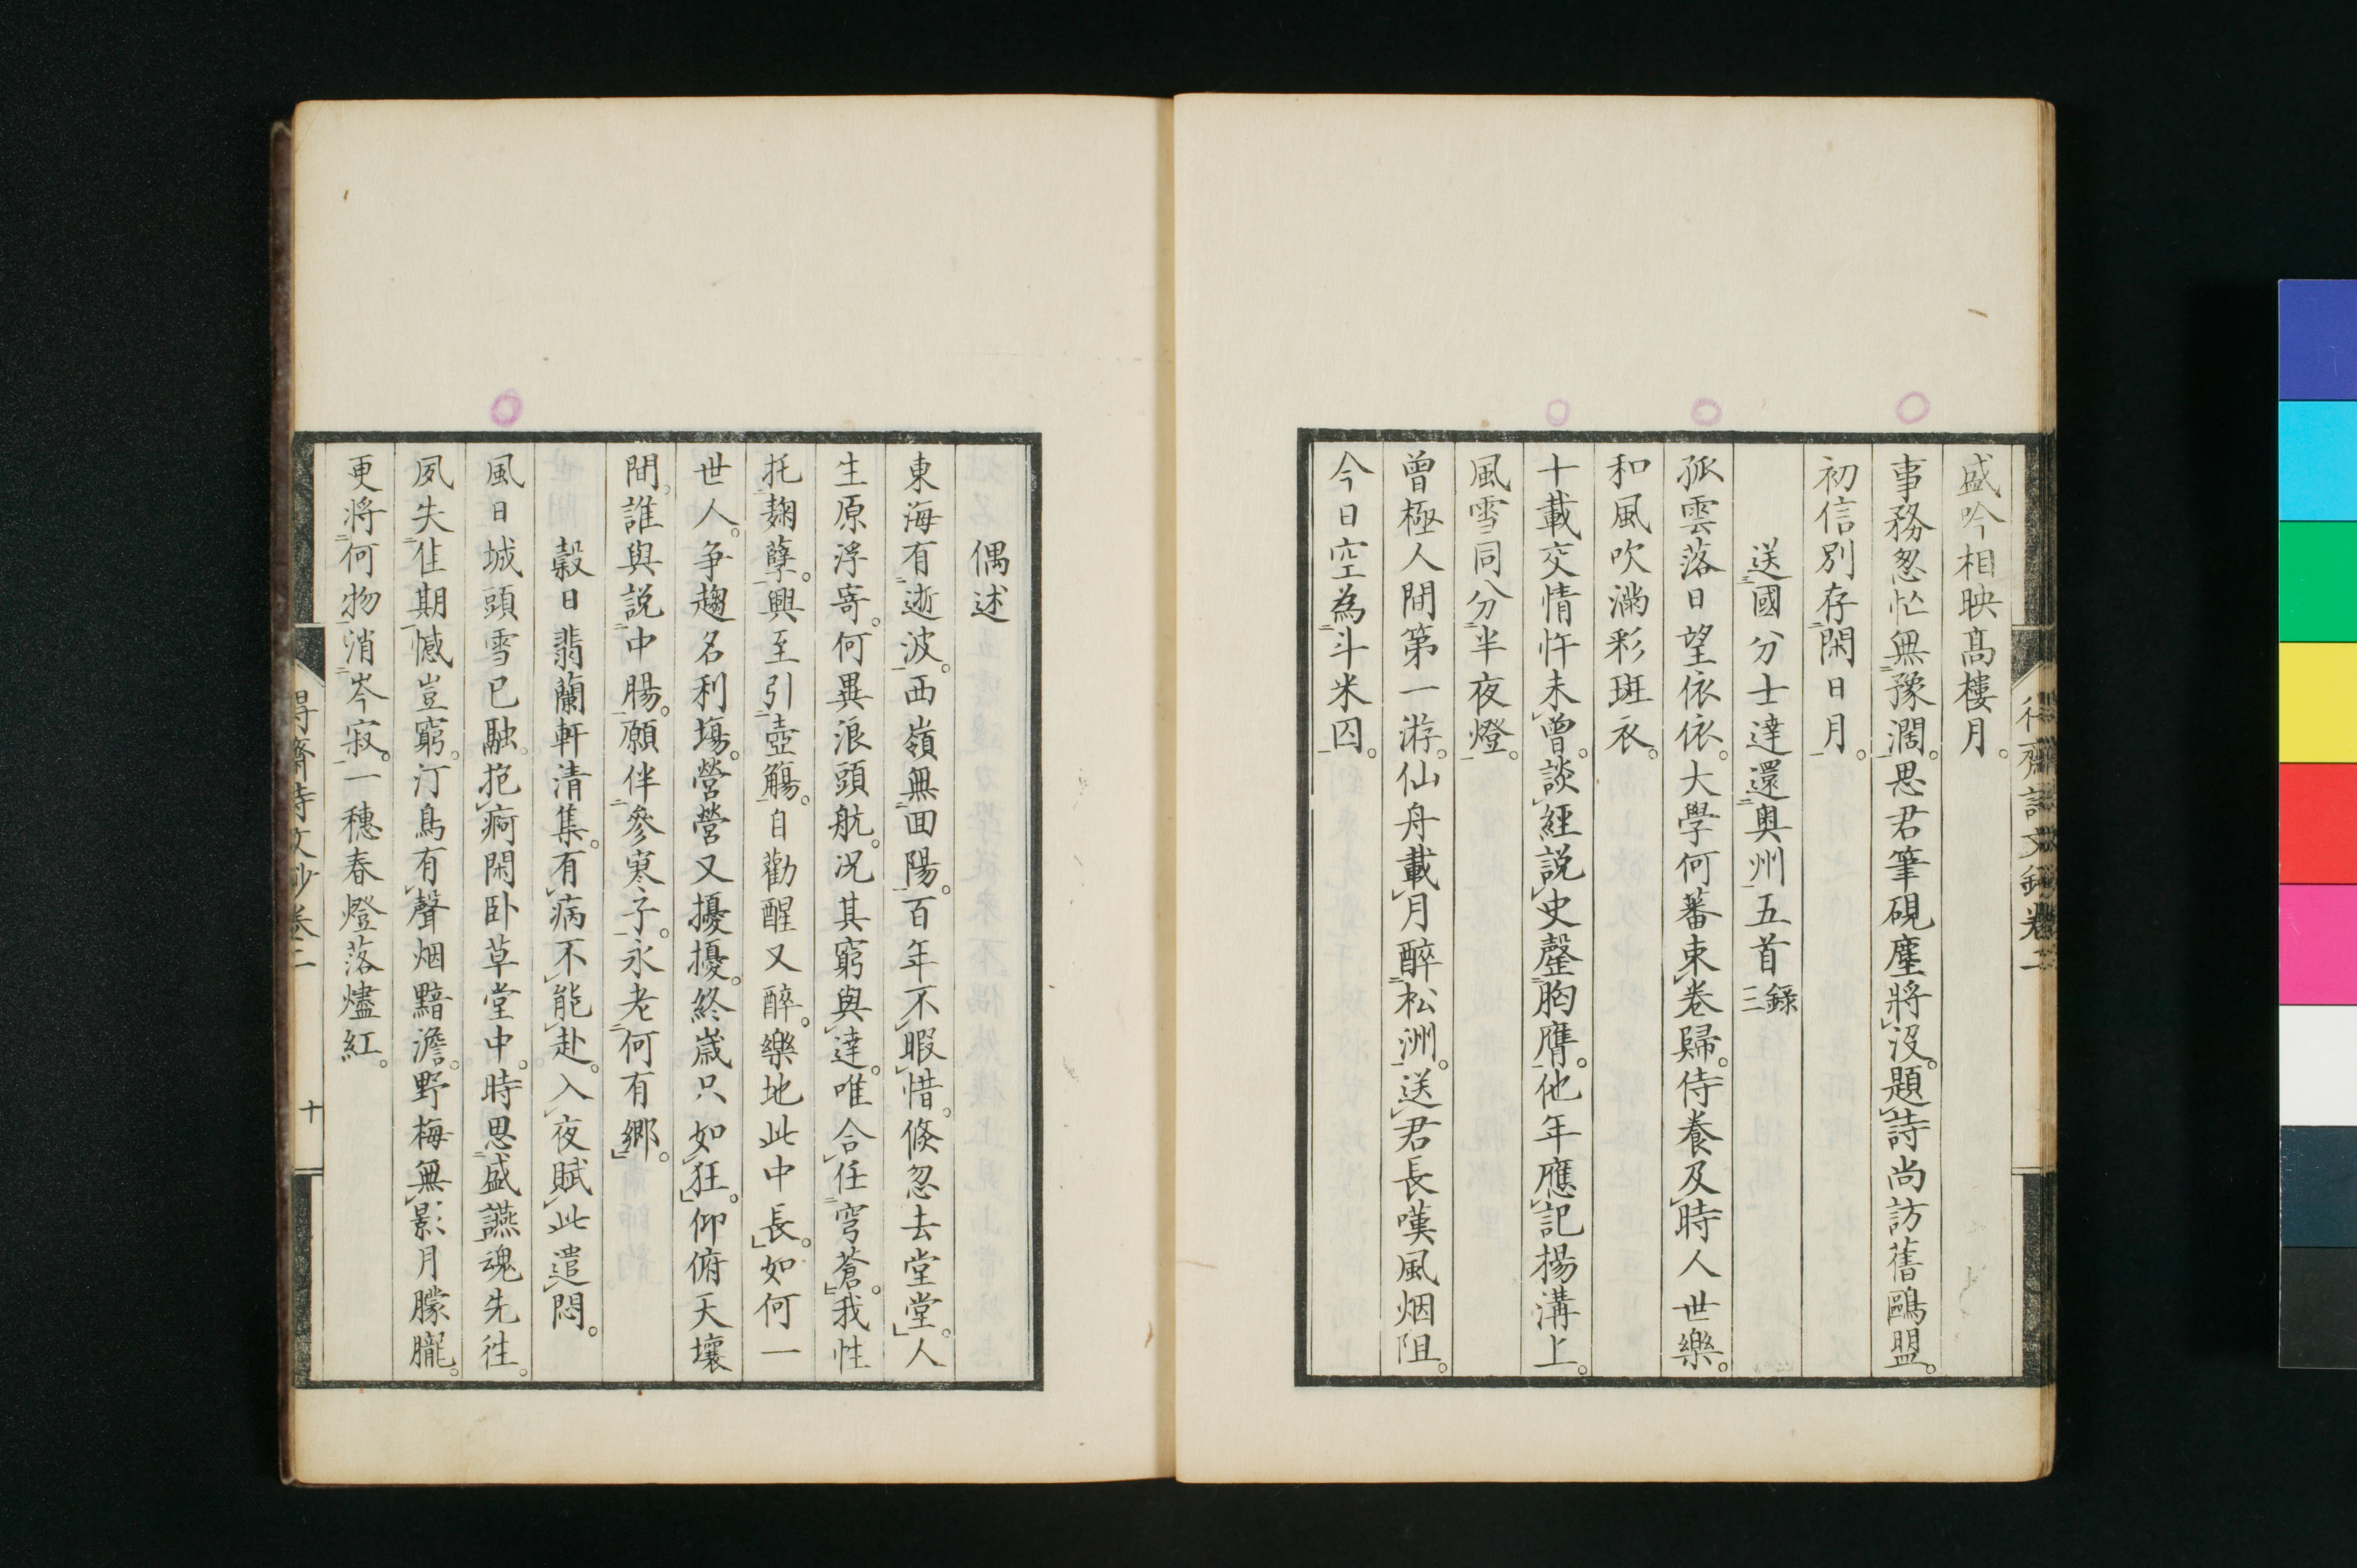 盛吟相映髙樓月。
事務怱忙無豫濶。思君筆硯塵將沒。題詩尚訪舊鷗盟。
初信別存閑日月。
送國分士達還奥州五首録三
孤雲落日望依依。大學何蕃束卷歸。侍養及時人世樂。
和風吹滿彩斑衣。
十載交情忤未曾。談經説史罄胸膺。他年應記楊溝上。
風雪同分半夜燈。
曾極人間第一游。仙舟載月醉松洲。送君長嘆風烟阻。
今日空為斗米囚。
偶述
東海有逝波。西嶺無囬陽。百年不暇惜。倏忽去堂堂。人
生原浮寄。何異浪頭航。况其窮與達。唯合任穹蒼。我性
托麹孽。興至引壺觴。自勸醒又醉。樂地此中長。如何一
世人。争趨名利塲。營營又擾擾。終歳只如狂。仰俯天壤
間。誰與説中腸。願伴參寒子。永老何有郷。
穀日翡蘭軒清集。有病不能赴。入夜賦此遣悶。
風日城頭雪已融。抱痾閑卧草堂中。時思盛讌魂先徃。
夙失佳期憾豈窮。汀鳥有聲烟黯澹。野梅無影月朦朧。
更將何物消岑寂。一穗春燈落燼紅。
得齋詩文鈔卷二
十